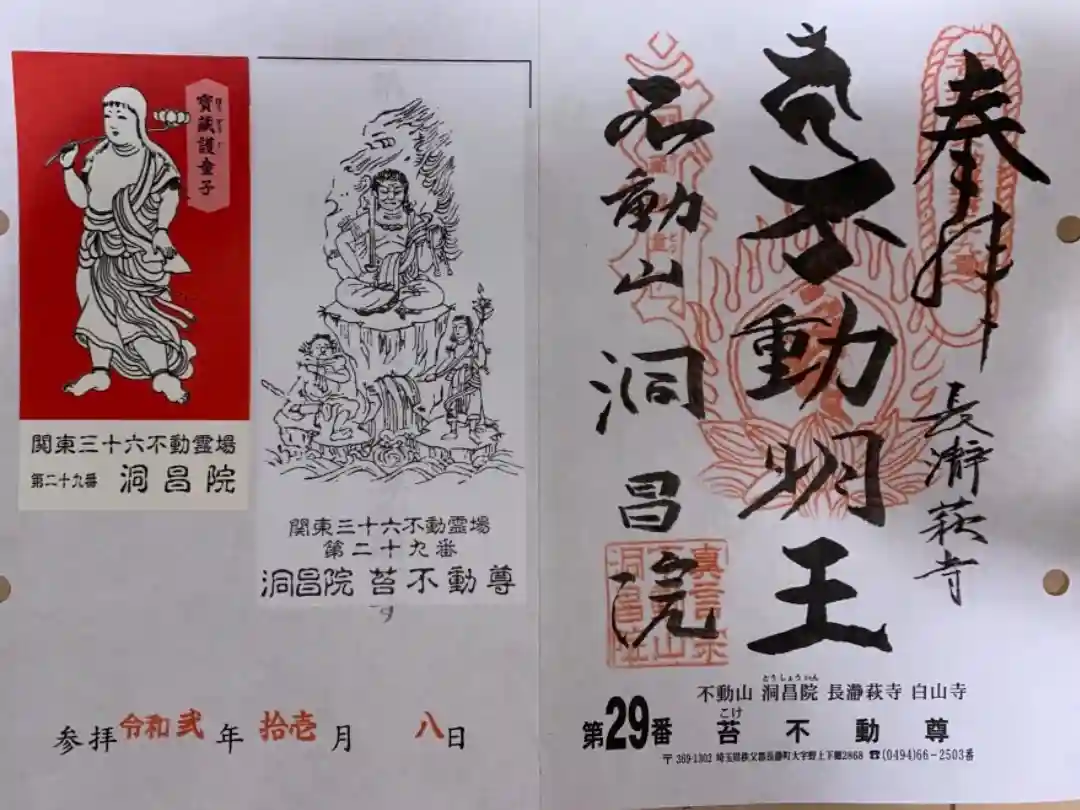 寶蔵護童子
関東三十六不動霊場
第二十九番 洞昌院
関東三十六不動霊場
第二十九番
洞昌院 苔不動尊
参拝令和弐年拾壱月八日
奉拝
長瀞萩寺
不動明王
不動山洞昌院
とうしょういん
不動山 洞昌院 長瀞萩寺 白山寺
こけ
第29番 苔不動尊
〒369-1302 埼玉県秩父郡長瀞町大字野上下郷2868 ☎(0494)66-2503番